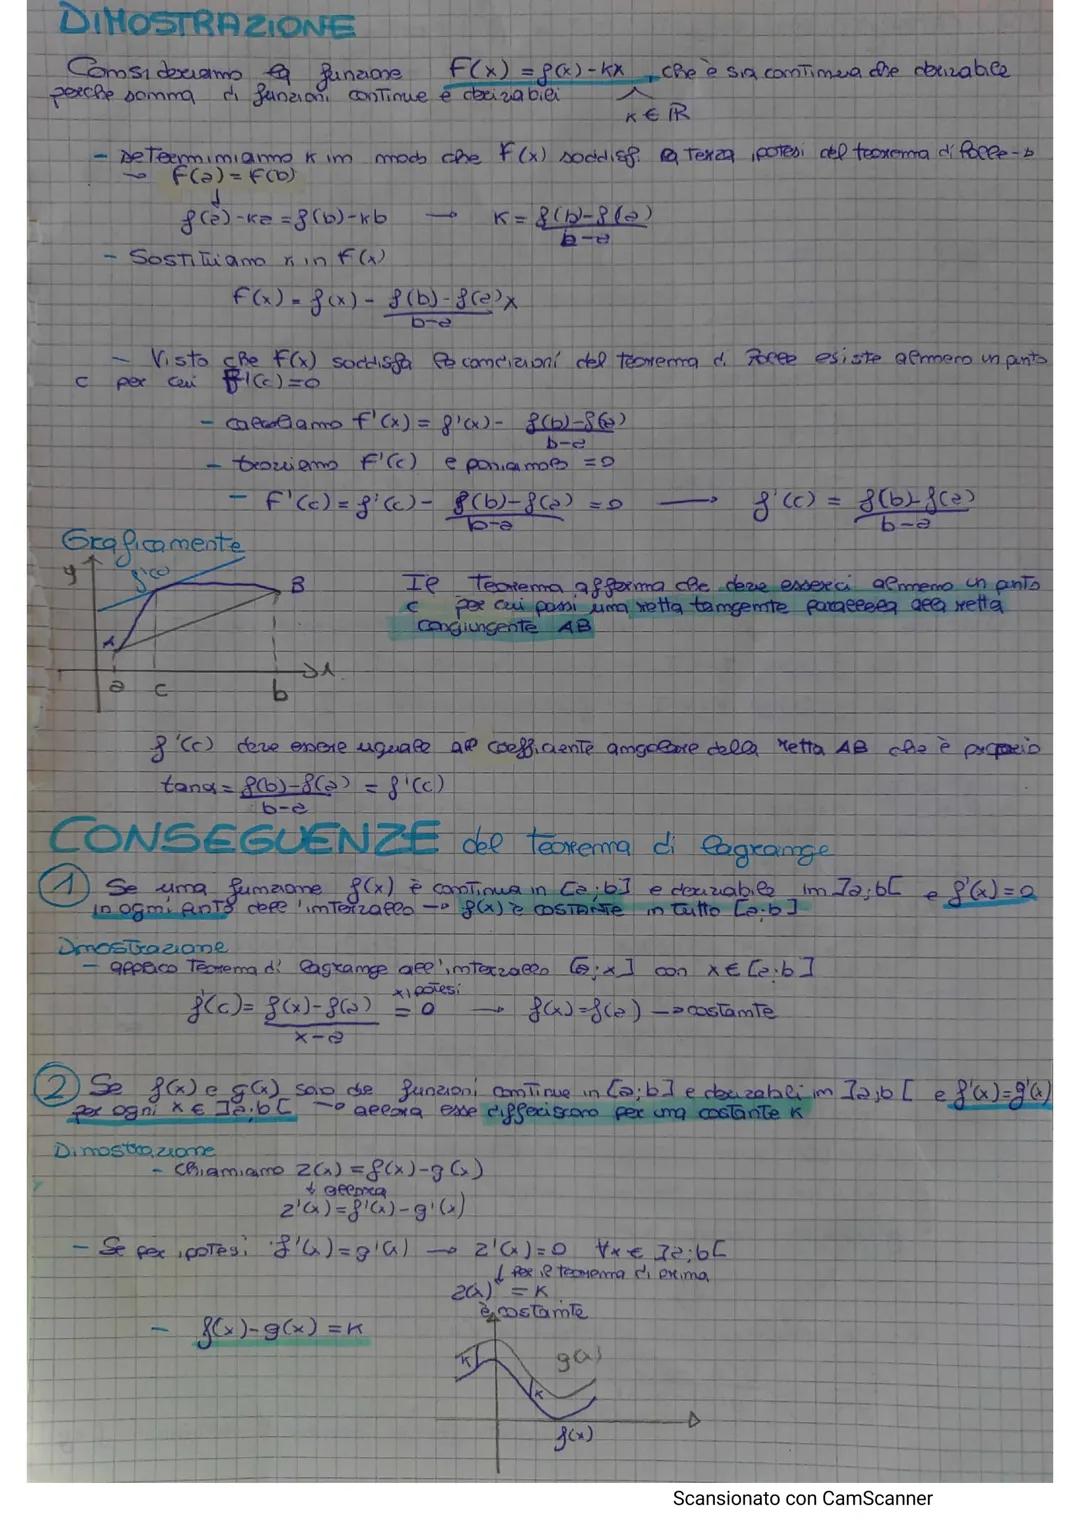 DIMOSTRAZIONE
Consideriamo la funzione F(x) = f(x) - kx, che è sia continua che derivabile
perché somma di funzioni continue e derivabili
k ∈ ℝ
- Determiniamo k in modo che F(x) soddisfi la terza ipotesi del teorema di Rolle →
→ F(a) = F(b)
↓
f(a) - ka = f(b) - kb → k = f(b) - f(a) / b - a
- Sostituiamo k in F(x)
F(x) = f(x) - f(b) - f(a) / b - a x
- Visto che F(x) soddisfa le condizioni del teorema di Rolle esiste almeno un punto
c per cui F'(c) = 0
- calcoliamo F'(x) = f'(x) - f(b) - f(a) / b - a
- troviamo F'(c) e poniamolo = 0
- F'(c) = f'(c) - f(b) - f(a) / b - a = 0 → f'(c) = f(b) - f(a) / b - a
Graficamente
y f'(c) B
A
a c b x
Il Teorema afferma che deve esserci almeno un punto
c per cui passi una retta tangente parallela alla retta
congiungente AB
f'(c) deve essere uguale al coefficiente angolare della retta AB che è proprio
tanα = f(b) - f(a) / b - a = f'(c)
CONSEGUENZE del teorema di Lagrange
1) Se una funzione f(x) è continua in [a;b] e derivabile in ]a;b[ e f'(x) = 0
in ogni punto dell'intervallo → f(x) è costante in tutto [a;b]
Dimostrazione
- applico Teorema di Lagrange all'intervallo [a;x] con x ∈ [a;b]
f'(c) = f(x) - f(a) / x - a = x ipotesi 0 → f(x) = f(a) → costante
2) Se f(x) e g(x) sono due funzioni continue in [a;b] e derivabili in ]a;b[ e f'(x) = g'(x)
per ogni x ∈ ]a;b[ → allora esse differiscono per una costante k
Dimostrazione
- Chiamiamo z(x) = f(x) - g(x)
↓ allora
z'(x) = f'(x) - g'(x)
- Se per ipotesi f'(x) = g'(x) → z'(x) = 0 ∀x ∈ ]a;b[
↓ per il teorema di prima
z(x) = k
è costante
- f(x) - g(x) = k
k g(x)
k
f(x)
Scansionato con CamScanner